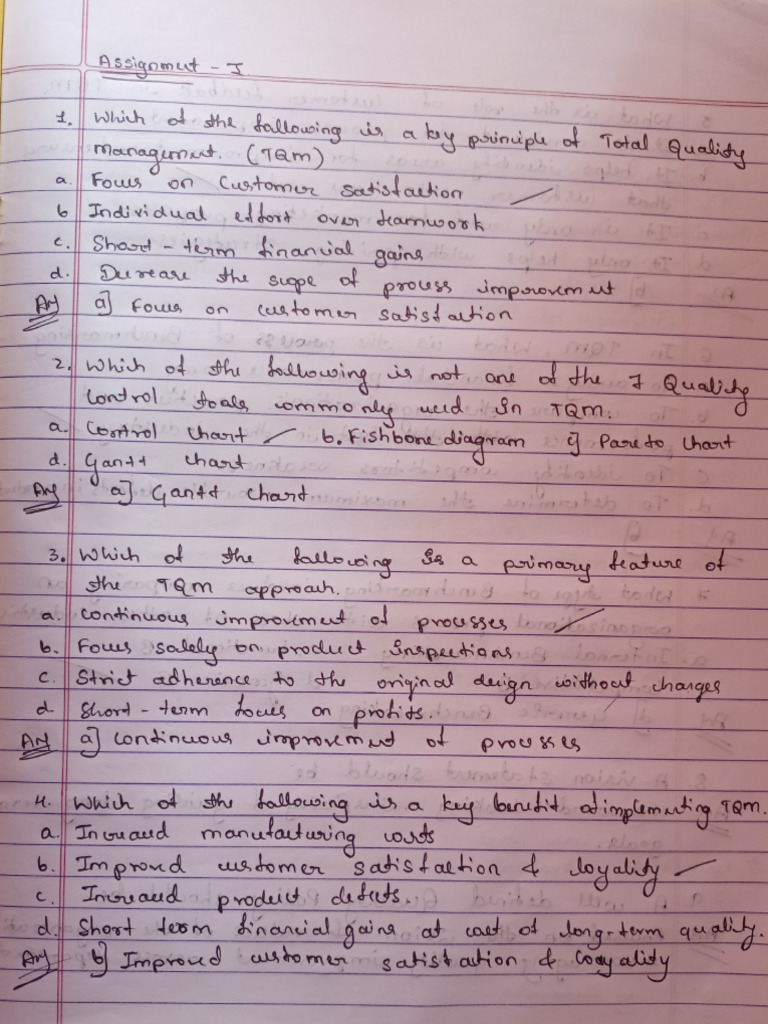 Assignment - I
1. Which of the following is a key principle of Total Quality
Management. (TQM)
a. Focus on Customer satisfaction
b Individual effort over teamwork
c. Short-term financial gains
d. Decrease the scope of process improvement
Ans a] Focus on customer satisfaction
2. Which of the following is not one of the 7 Quality
Control tools commonly used in TQM.
a. Control chart b. Fishbone diagram c] Pareto chart
d. Gantt chart
Ans a] Gantt chart
3. Which of the following is a primary feature of
the TQM approach.
a. continuous improvement of processes
b. Focus solely on product inspections
c. Strict adherence to the original design without changes
d. Short-term focus on profits.
Ans a] continuous improvement of processes
4. Which of the following is a key benefit of implementing TQM.
a. Increased manufacturing costs
b. Improved customer satisfaction & loyality
c. Increased product defects.
d. Short term financial gains at cost of long-term quality.
Ans b] Improved customer satisfaction & loyality